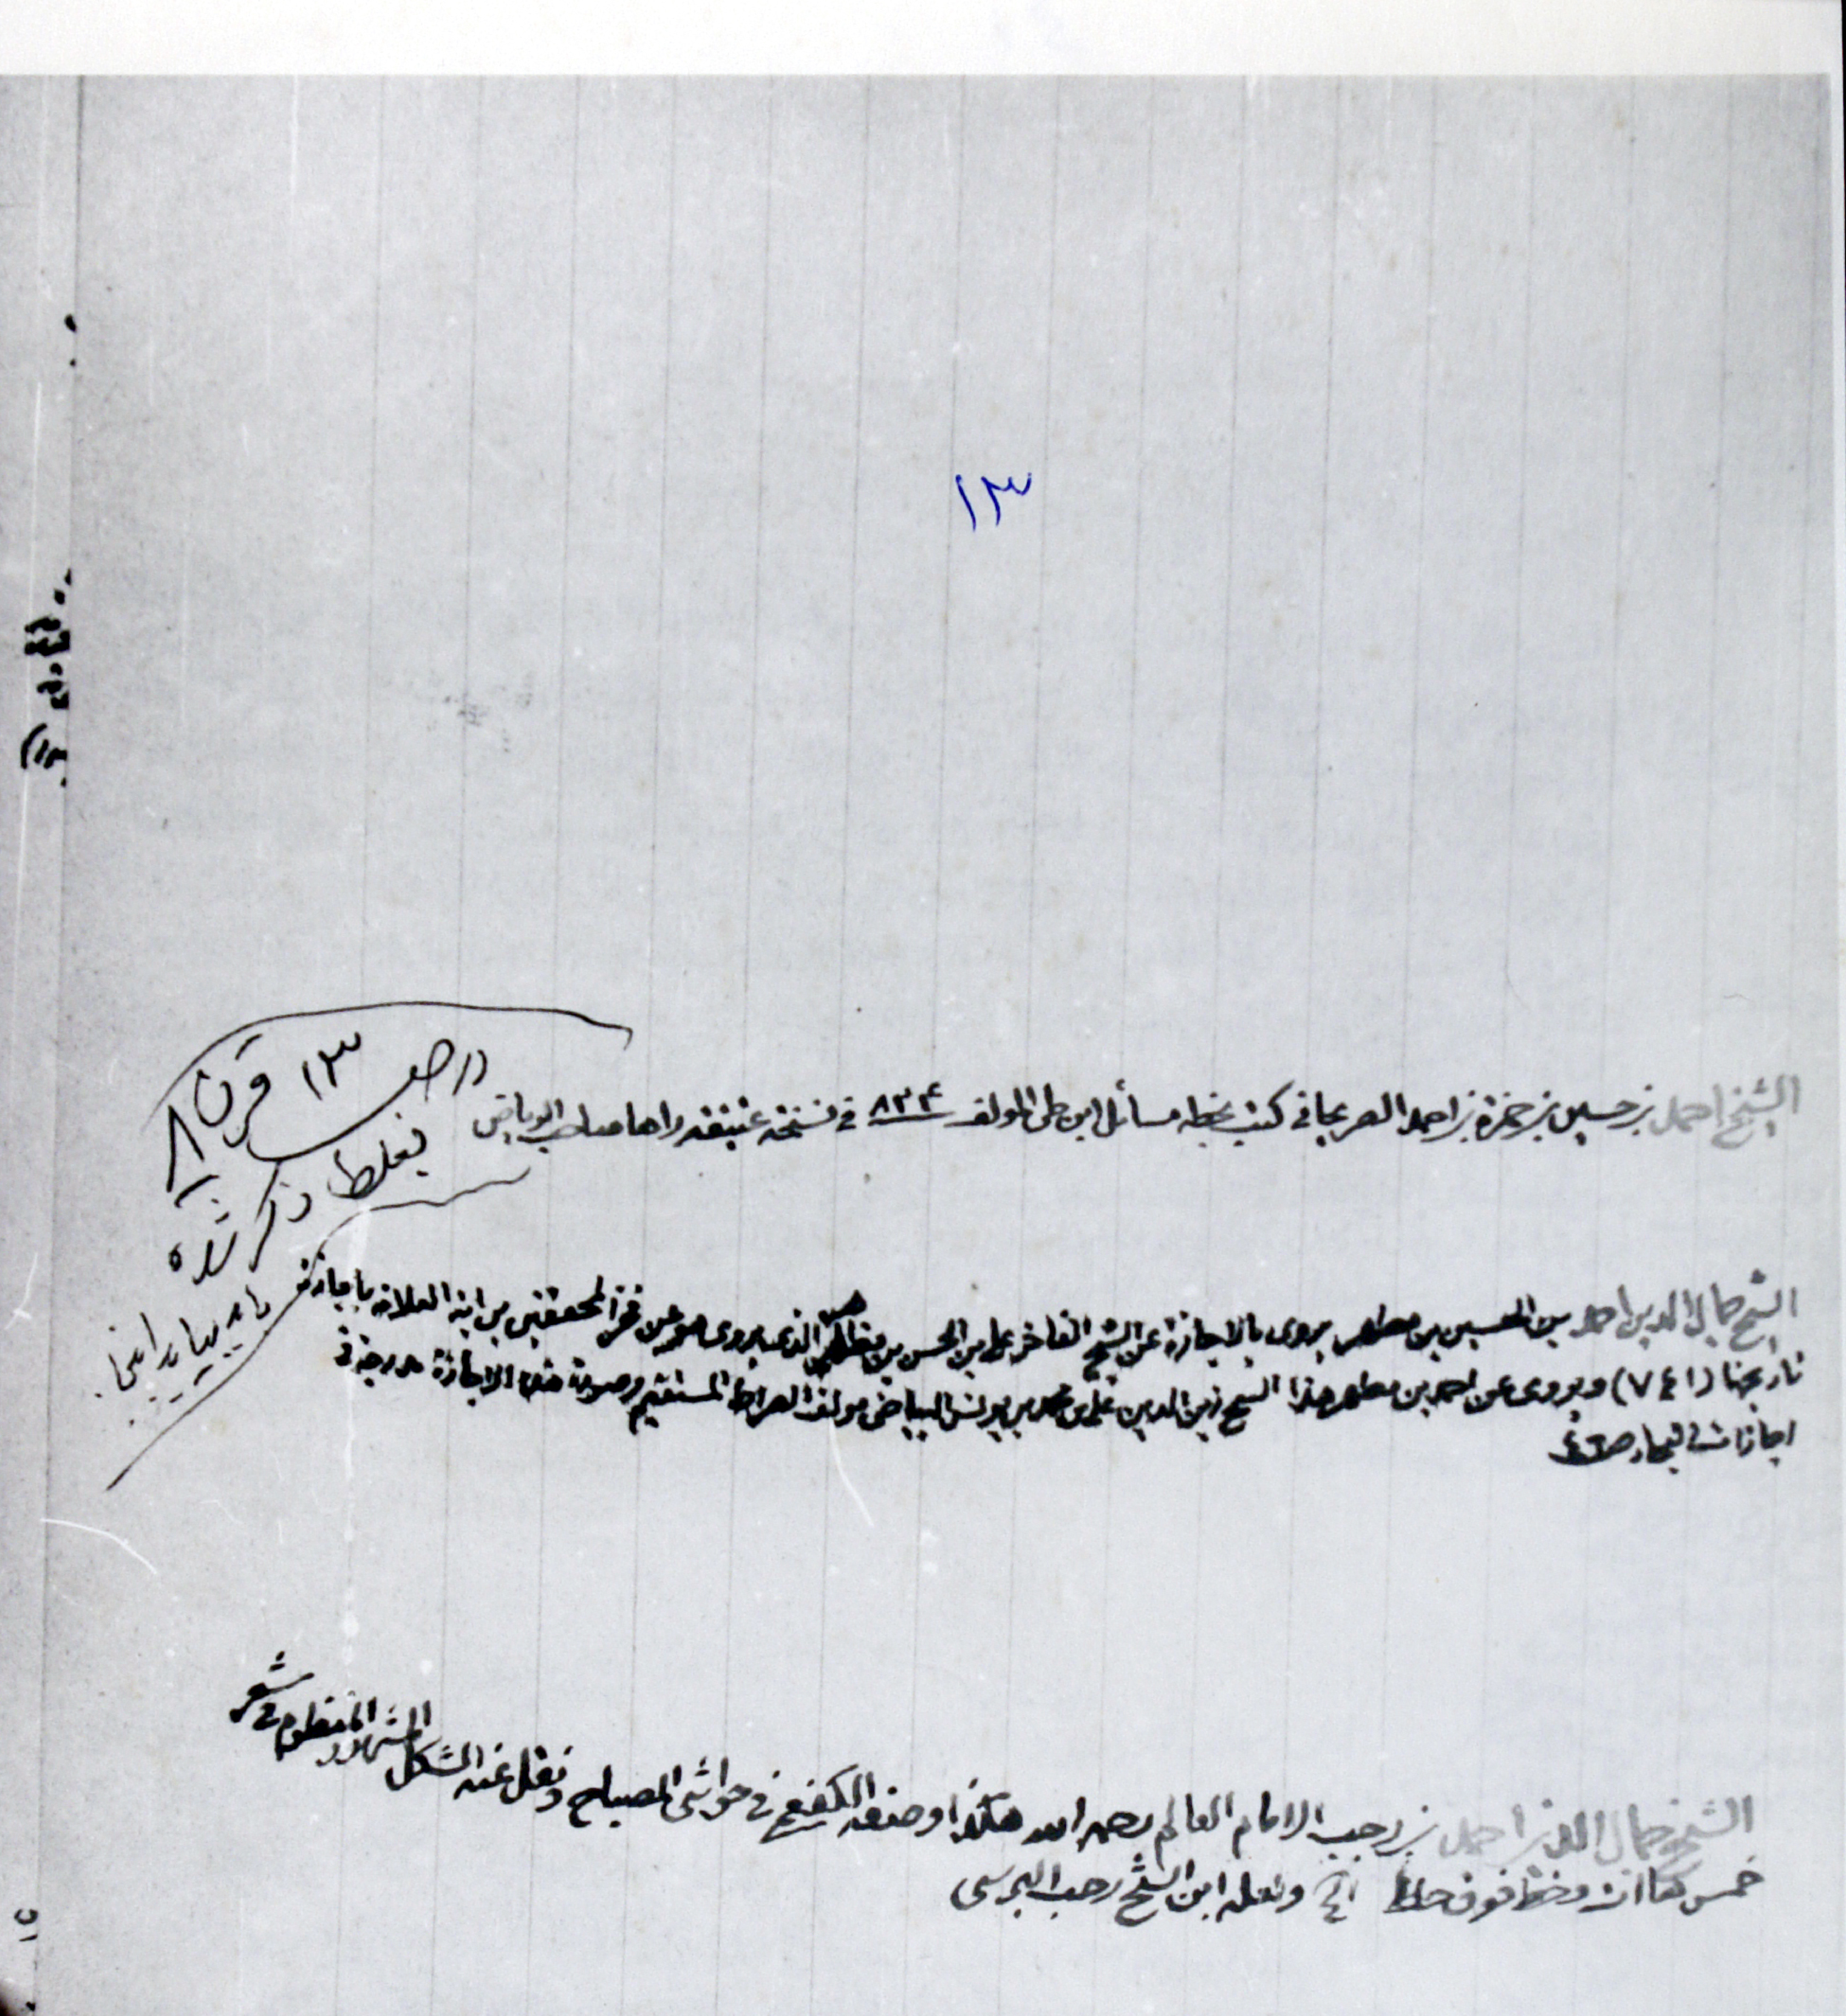 ١٣
الشيخ احمد بن حسين بن حمزة بن احمد الصريحاني كتب بخطه مسائل ابن طى المولف ٨٢٤ في نسخة عتيقة راها صاحب الرياض
در ص ١٣ قرن ٨
بغلط ذكر شده
بايد بيايد اينجا
الشيخ جمال الدين احمد بن الحسين بن مطهر يروى بالاجازة عن الشيخ الفاخر على بن الحسن بن مظاهر الذى يروى هو عن فخر المحققين بن اية العلامة باجازة
تاريخها (٧٤١) ويروى عن احمد بن مطهر هذا الشيخ زين الدين على بن محمد بن يونس البياضى مولف الصراط المستقيم وصورة هذه الاجازة مدرجة في
اجازات البحار ص
الشيخ جمال الدين احمد بن رجب الامام العالم رحمه الله هكذا وصفه الكفعمى في حواشى المصباح ونقل عنه الشكل المشهور المنظوم في شعر
خمس هاات وخط فوق خط الخ ولعله ابن الشيخ رجب البرسى